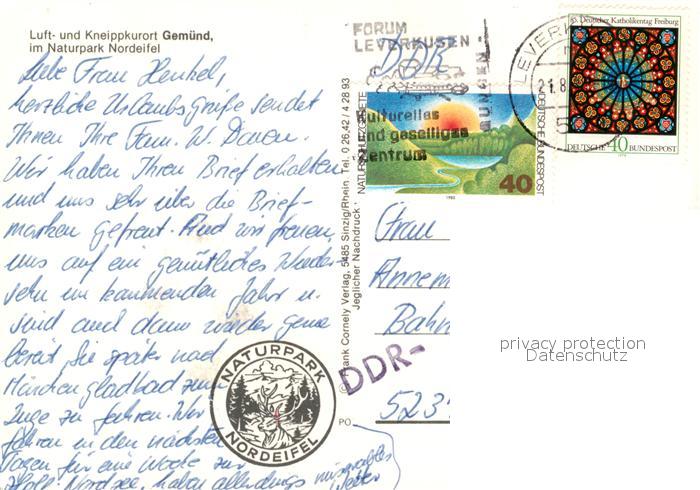 Luft- und Kneippkurort Gemünd,
im Naturpark Nordeifel
Liebe Frau Henkel,
herzliche Urlaubsgrüße sendet
Ihnen Ihre Fam. W.
Wir haben Ihren Brief erhalten
und uns sehr über die Brief-
marken gefreut. Und wir freuen
uns auf ein gemütliches Wieder-
sehn im kommenden Jahr u.
sind auch dann wieder gerne
bereit Sie später nach
Mönchengladbach zum
Zuge zu fahren. Wir
fahren in den nächsten
Tagen für eine Woche zur
Holl. Nordsee, haben allerdings miserables
Wetter
NATURPARK
NORDEIFEL
© Frank Cornely Verlag, 5485 Sinzig/Rhein, Tel. 0 26,42 / 4 28 93
Jeglicher Nachdruck
FORUM
LEVERKUSEN
DDR
kulturelles
und geselliges
Zentrum
LEVERKU
21.8
5
NATURSCHUTZGEBIETE
40
1980
DEUTSCHE BUNDESPOST
85. Deutscher Katholikentag Freiburg
DEUTSCHE 40 BUNDESPOST
1978
Frau
Annem
Bahn
DDR-
523
PO
privacy protection
Datenschutz